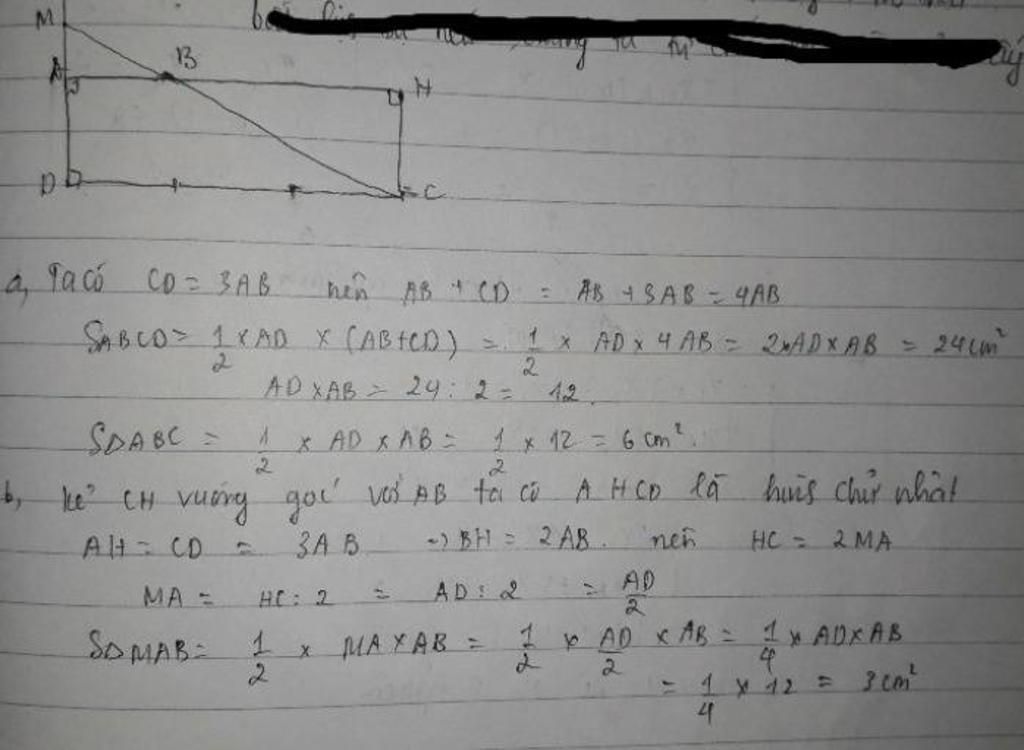 M
B
A
H
D
C
a, Ta có CD = 3AB nên AB + CD = AB + 3AB = 4AB
SABCD = 1/2 x AD x (AB+CD) = 1/2 x AD x 4AB = 2xADxAB = 24cm²
AD x AB = 24 : 2 = 12.
SΔABC = 1/2 x AD x AB = 1/2 x 12 = 6 cm².
b, kẻ CH vuông góc với AB ta có AHCD là hình chữ nhật
AH = CD = 3AB => BH = 2AB. nên HC = 2MA
MA = HC : 2 = AD : 2 = AD/2
SΔMAB = 1/2 x MA x AB = 1/2 x AD/2 x AB = 1/4 x AD x AB
= 1/4 x 12 = 3cm²